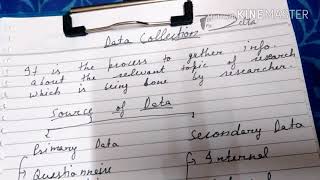 Made with
KINEMASTER
Data Collection
It is the process to gether info.
about the relevant topic of research
which is being done by researcher.
Source of Data
Primary Data Secondary Data
Questionnaire Internal